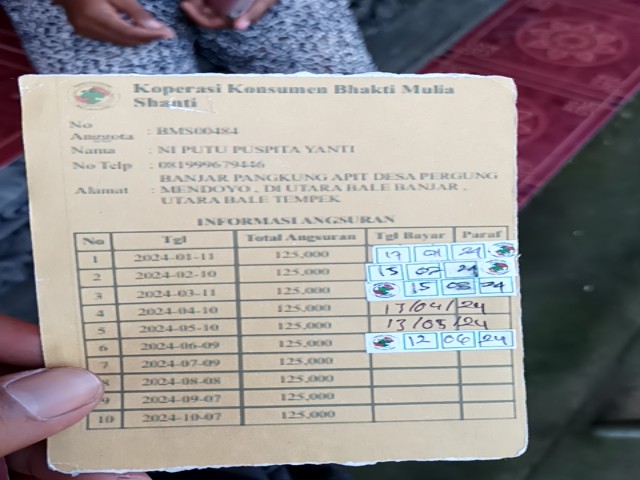 Koperasi Konsumen Bhakti Mulia
Shanti
No
Anggota : BMS00484
Nama : NI PUTU PUSPITA YANTI
No Telp : 081999679446
BANJAR PANGKUNG APIT DESA PERGUNG
Alamat : MENDOYO , DI UTARA BALE BANJAR ,
UTARA BALE TEMPEK
INFORMASI ANGSURAN
No Tgl Total Angsuran Tgl Bayar Paraf
1 2024-01-11 125,000 17 01 24
2 2024-02-10 125,000 15 02 24
3 2024-03-11 125,000 15 03 24
4 2024-04-10 125,000 13/04/24
5 2024-05-10 125,000 13/05/24
6 2024-06-09 125,000 12 06 24
7 2024-07-09 125,000
8 2024-08-08 125,000
9 2024-09-07 125,000
10 2024-10-07 125,000